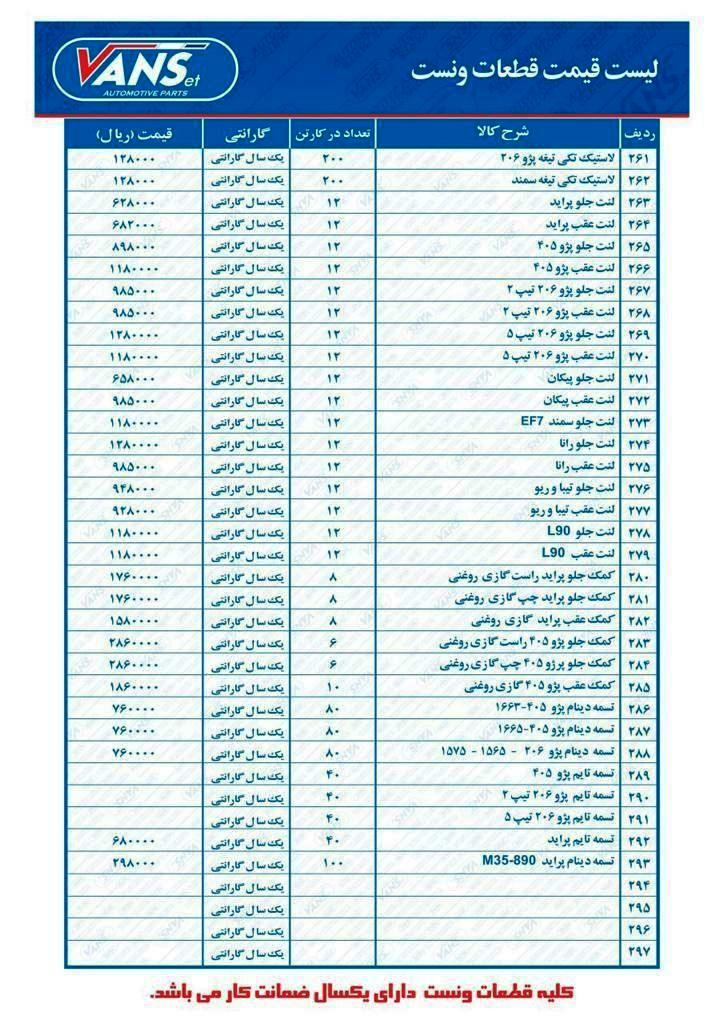 VANSet
AUTOMOTIVE PARTS
لیست قیمت قطعات ونست
ردیف شرح کالا تعداد در کارتن گارانتی قیمت (ریال)
۲۶۱ لاستیک تکی تیغه پژو ۲۰۶ ۲۰۰ یک سال گارانتی ۱۲۸۰۰۰
۲۶۲ لاستیک تکی تیغه سمند ۲۰۰ یک سال گارانتی ۱۲۸۰۰۰
۲۶۳ لنت جلو پراید ۱۲ یک سال گارانتی ۶۲۸۰۰۰
۲۶۴ لنت عقب پراید ۱۲ یک سال گارانتی ۶۸۲۰۰۰
۲۶۵ لنت جلو پژو ۴۰۵ ۱۲ یک سال گارانتی ۸۹۸۰۰۰
۲۶۶ لنت عقب پژو ۴۰۵ ۱۲ یک سال گارانتی ۱۱۸۰۰۰۰
۲۶۷ لنت جلو پژو ۲۰۶ تیپ ۲ ۱۲ یک سال گارانتی ۹۸۵۰۰۰
۲۶۸ لنت عقب پژو ۲۰۶ تیپ ۲ ۱۲ یک سال گارانتی ۹۸۵۰۰۰
۲۶۹ لنت جلو پژو ۲۰۶ تیپ ۵ ۱۲ یک سال گارانتی ۱۲۸۰۰۰۰
۲۷۰ لنت عقب پژو ۲۰۶ تیپ ۵ ۱۲ یک سال گارانتی ۱۱۸۰۰۰۰
۲۷۱ لنت جلو پیکان ۱۲ یک سال گارانتی ۶۵۸۰۰۰
۲۷۲ لنت عقب پیکان ۱۲ یک سال گارانتی ۹۸۵۰۰۰
۲۷۳ لنت جلو سمند EF7 ۱۲ یک سال گارانتی ۱۱۸۰۰۰۰
۲۷۴ لنت جلو رانا ۱۲ یک سال گارانتی ۱۲۸۰۰۰۰
۲۷۵ لنت عقب رانا ۱۲ یک سال گارانتی ۹۸۵۰۰۰
۲۷۶ لنت جلو تیبا و ریو ۱۲ یک سال گارانتی ۹۴۸۰۰۰
۲۷۷ لنت عقب تیبا و ریو ۱۲ یک سال گارانتی ۹۲۸۰۰۰
۲۷۸ لنت جلو L90 ۱۲ یک سال گارانتی ۱۱۸۰۰۰۰
۲۷۹ لنت عقب L90 ۱۲ یک سال گارانتی ۱۱۸۰۰۰۰
۲۸۰ کمک جلو پراید راست گازی روغنی ۸ یک سال گارانتی ۱۷۶۰۰۰۰
۲۸۱ کمک جلو پراید چپ گازی روغنی ۸ یک سال گارانتی ۱۷۶۰۰۰۰
۲۸۲ کمک عقب پراید گازی روغنی ۸ یک سال گارانتی ۱۵۸۰۰۰۰
۲۸۳ کمک جلو پژو ۴۰۵ راست گازی روغنی ۶ یک سال گارانتی ۲۸۶۰۰۰۰
۲۸۴ کمک جلو پرژو ۴۰۵ چپ گازی روغنی ۶ یک سال گارانتی ۲۸۶۰۰۰۰
۲۸۵ کمک عقب پژو ۴۰۵ گازی روغنی ۱۰ یک سال گارانتی ۱۸۶۰۰۰۰
۲۸۶ تسمه دینام پژو ۴۰۵-۱۶۶۳ ۸۰ یک سال گارانتی ۷۶۰۰۰۰
۲۸۷ تسمه دینام پژو ۴۰۵-۱۶۶۵ ۸۰ یک سال گارانتی ۷۶۰۰۰۰
۲۸۸ تسمه دینام پژو ۲۰۶ - ۱۵۶۵ - ۱۵۷۵ ۸۰ یک سال گارانتی ۷۶۰۰۰۰
۲۸۹ تسمه تایم پژو ۴۰۵ ۴۰ یک سال گارانتی
۲۹۰ تسمه تایم پژو ۲۰۶ تیپ ۲ ۴۰ یک سال گارانتی
۲۹۱ تسمه تایم پژو ۲۰۶ تیپ ۵ ۴۰ یک سال گارانتی
۲۹۲ تسمه تایم پراید ۴۰ یک سال گارانتی ۶۸۰۰۰۰
۲۹۳ تسمه دینام پراید M35-890 ۱۰۰ یک سال گارانتی ۲۹۸۰۰۰
۲۹۴ یک سال گارانتی
۲۹۵ یک سال گارانتی
۲۹۶ یک سال گارانتی
۲۹۷ یک سال گارانتی
کلیه قطعات ونست دارای یکسال ضمانت کار می باشد.